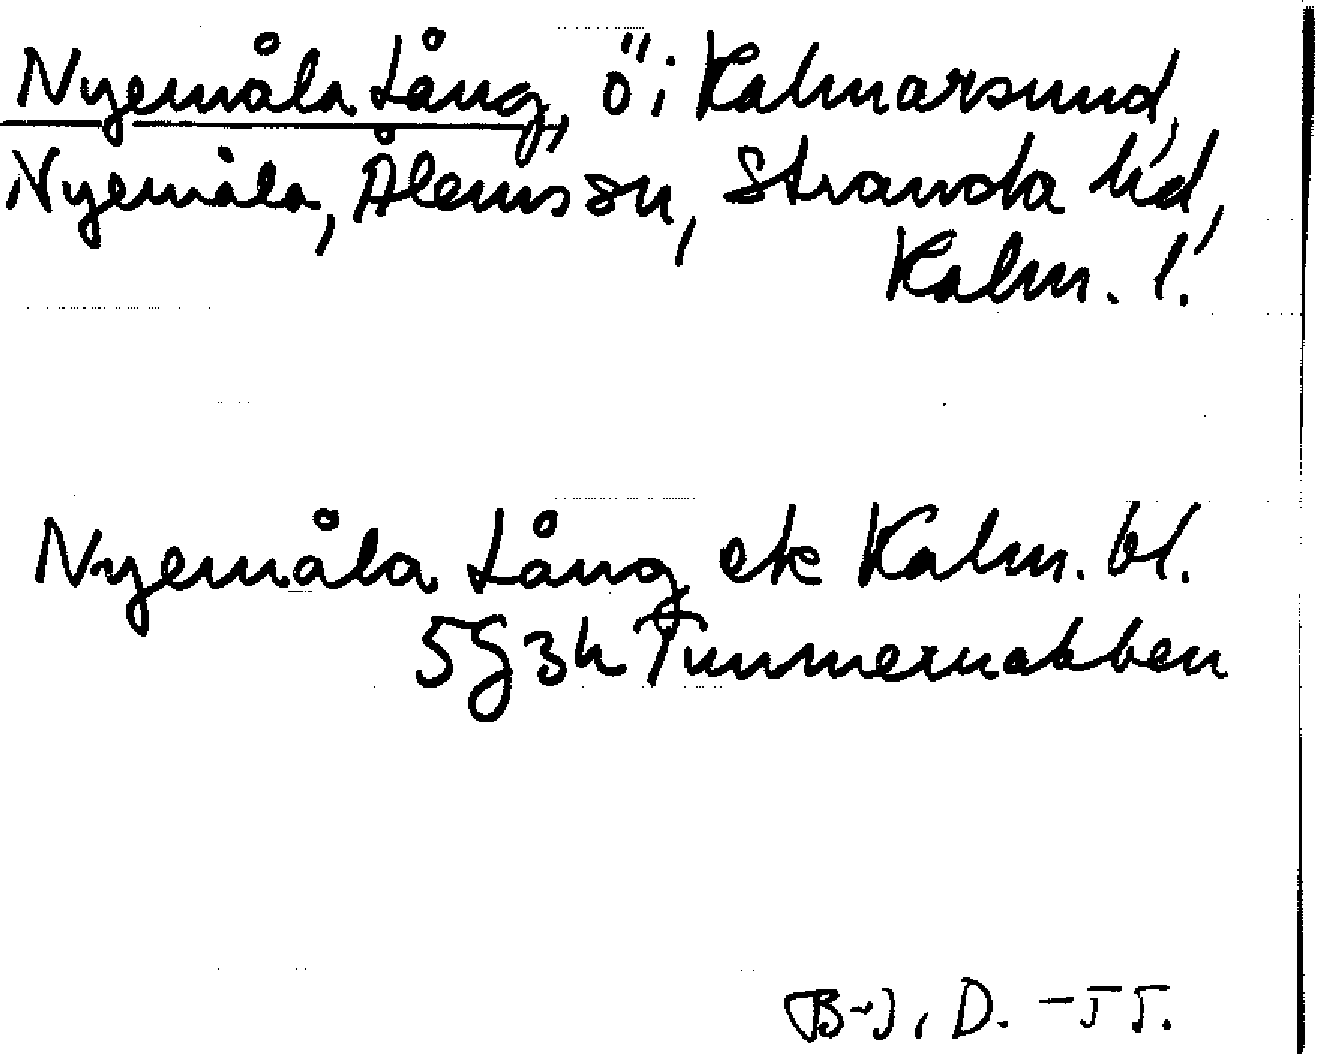 Nyemåla Lång, ö i Kalmarsund,
Nyemåla, Ålems sn, Stranda hd,
Kalm. l.
Nyemåla Lång ek Kalm. bl.
5G3h Tummernabben
B-J, D. -55.